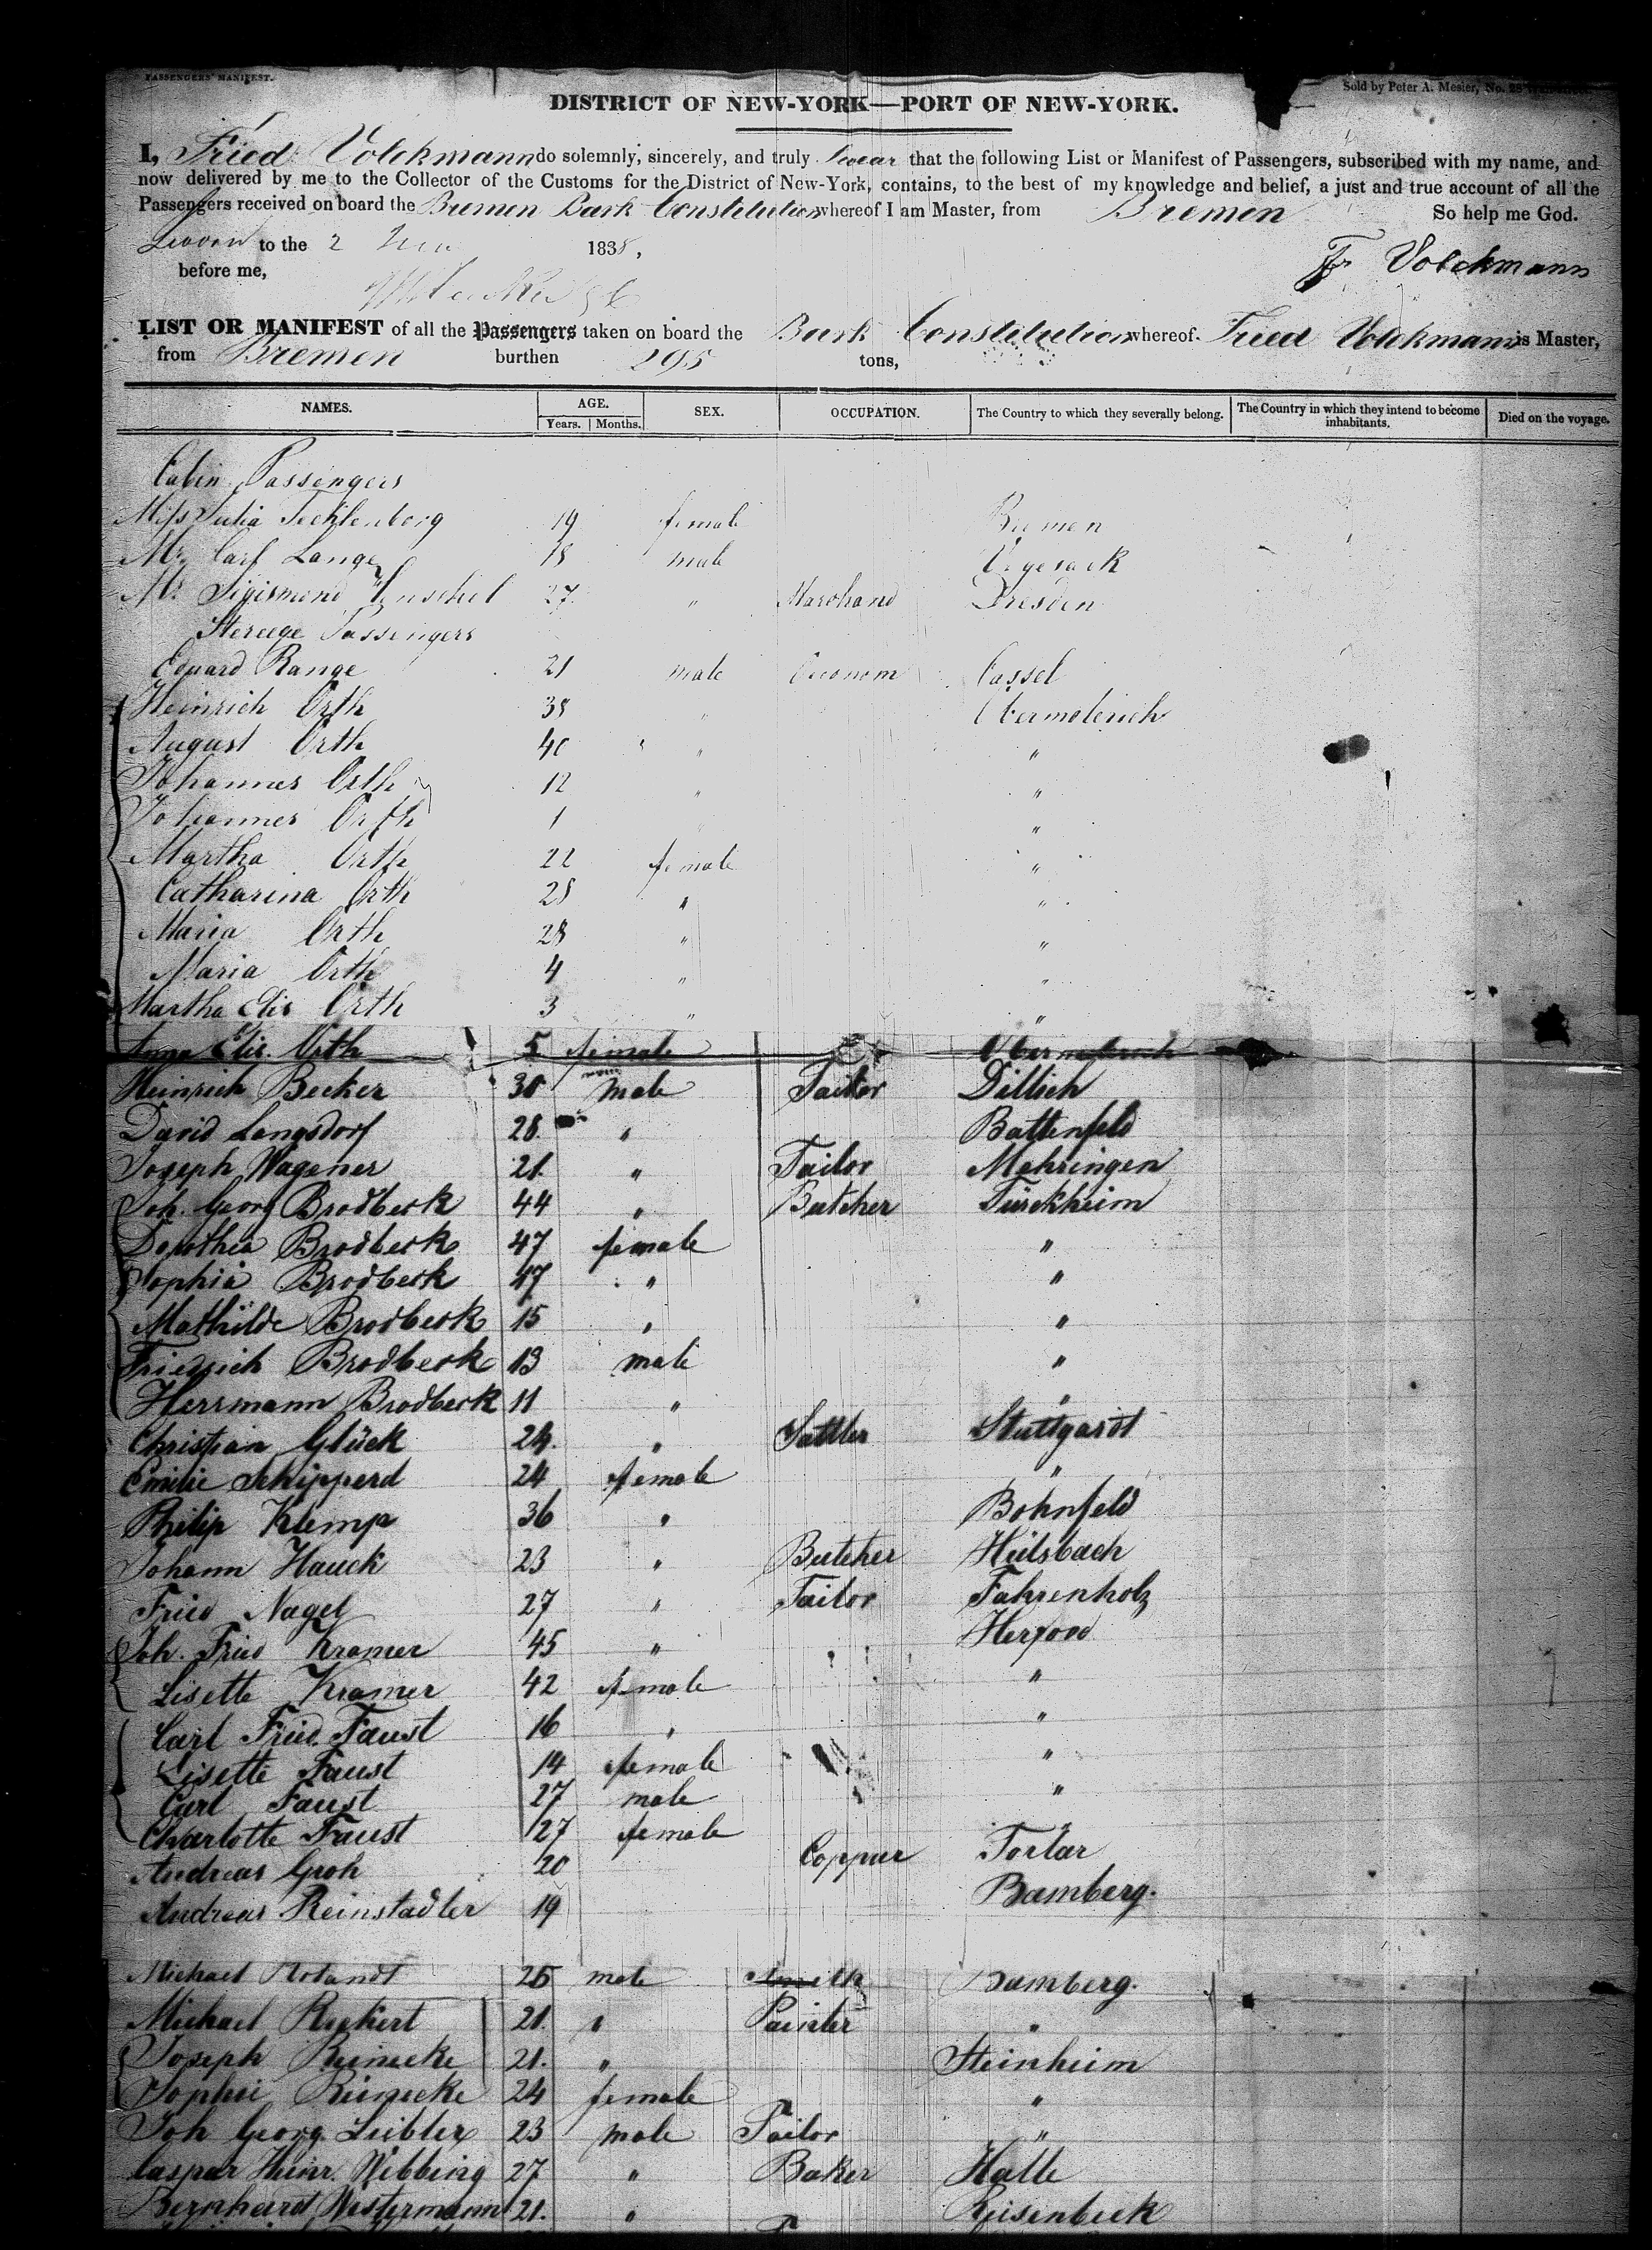 PASSENGERS' MANIFEST.
Sold by Peter A. Mesier, No. 28
DISTRICT OF NEW-YORK—PORT OF NEW-YORK.
I, Fried Volckmann do solemnly, sincerely, and truly swear that the following List or Manifest of Passengers, subscribed with my name, and
now delivered by me to the Collector of the Customs for the District of New-York, contains, to the best of my knowledge and belief, a just and true account of all the
Passengers received on board the Bremen Bark Constitution whereof I am Master, from Bremen So help me God.
Sworn to the 2 1838,
Fr Volckmann
before me,
LIST OR MANIFEST of all the Passengers taken on board the Bark Constitution whereof Fried Volckmann is Master,
from Bremen burthen 295 tons,
NAMES. AGE. Years. Months. SEX. OCCUPATION. The Country to which they severally belong. The Country in which they intend to become inhabitants. Died on the voyage.
Cabin Passengers
Miss Julia Tecklenborg 19 female Bremen
Mr. Carl Lange 18 male Vegesack
Mr. Sigismond 27 " Marchand Dresden
Stereege Passengers
Eduard Range 21 male Oeconom Cassel
Heinrich Orth 38 " Obermelerich
August Orth 40 " "
Johannes Orth 12 " "
Johannes Orth 1 " "
Martha Orth 22 female "
Catharina Orth 28 " "
Maria Orth 28 " "
Maria Orth 4 " "
Martha Elis Orth 3 " "
Anna Elis. Orth 5 female Obermelerich
Heinrich Becker 30 male Tailor Dillich
David Langsdorf 28. " Battenfeld
Joseph Wagener 21. " Tailor Mehringen
Joh. Georg Brodbeck 44 " Butcher Turckheim
Dorothea Brodbeck 47 female "
Sophia Brodbeck 17 " "
Mathilde Brodbeck 15 " "
Friedrich Brodbeck 13 male "
Herrmann Brodbeck 11 " "
Christian Glück 24. " Sattler Stuttgardt
Emilie Schipperd 24 female "
Philip Klemp 36 " Bohnfeld
Johann Hauck 23 " Butcher Hilsbach
Fried Nagel 27 " Tailor Fahrenholz
Joh. Fried Kramer 45 " Herford
Lisette Kramer 42 female "
Carl Fried. Faust 16 " "
Lisette Faust 14 female "
Carl Faust 27 male "
Charlotte Faust 27 female "
Andreas Groh 20 Copper Forlar
Andreas Reinstadler 19 Bamberg.
Michael Rolandt 25 male Smith Bamberg.
Michael Ruckert 21. " Painter "
Joseph Reinecke 21. " Steinheim
Sophie Reinecke 24 female "
Joh Georg Leibler 23 male Tailor "
Caspar Heinr. Wibbing 27 " Baker Halle
Bernhard Westermann 21. " Reisenbeck